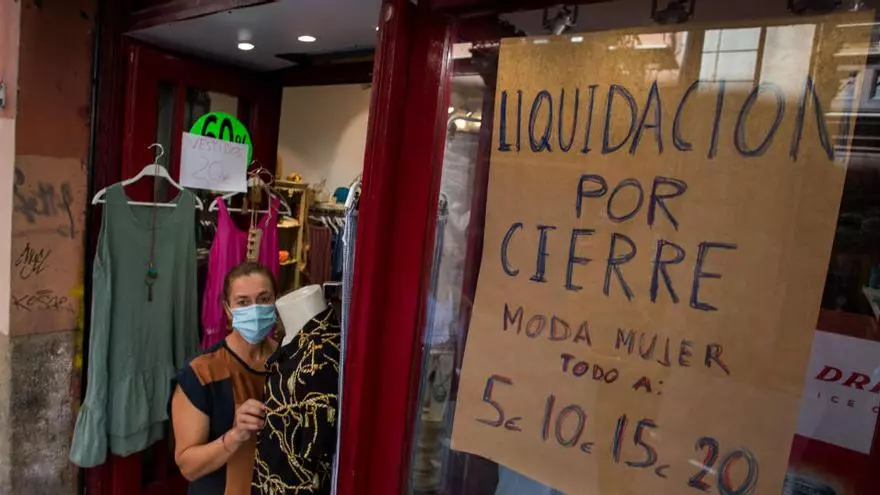 60%
VESTIDOS
20€
LIQUIDACION
POR
CIERRE
MODA MUJER
TODO A:
5€ 10€ 15€ 20
DRE
ICE C